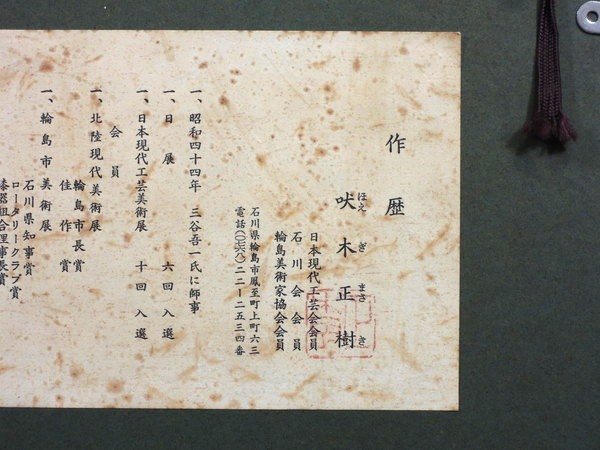 作歴
吠木正樹
ほえぎまさき
日本現代工芸会会員
石川会会員
輪島美術家協会会員
石川県輪島市鳳至町上町六三
電話(〇七六八)二二ー二五三四番
一、昭和四十四年 三谷吾一氏に師事
一、日展 六回入選
一、日本現代工芸美術展 十回入選
会員
一、北陸現代美術展
一、輪島市美術展
輪島市長賞
佳作賞
石川県知事賞
ロータリークラブ賞
漆器組合理事長賞